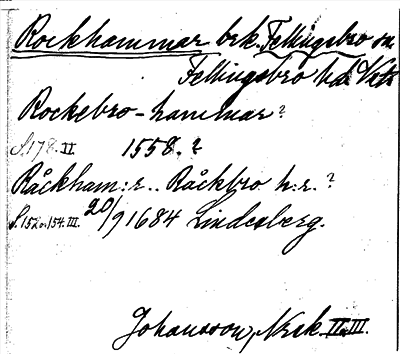 Rockhammar brk. Fellingsbro sn.
Fellingsbro hd. Vstm
Rockebro-hammar?
S. 178. II 1558.?
Råckham:r.. Råckbro h:r.?
S. 152 o. 154. III. 20/9 1684 Lindesberg.
Johansson, Norask. II o. III.